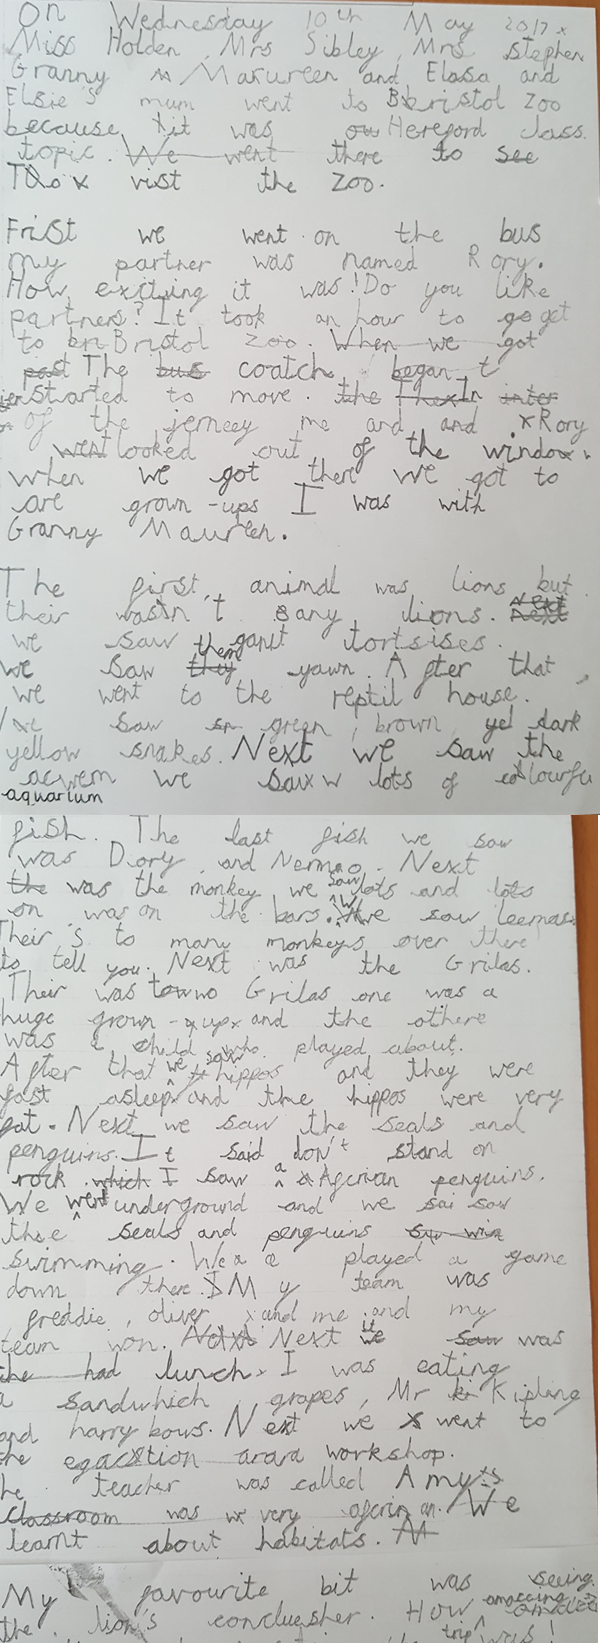 On Wednesday 10th May 2017
Miss Holden, Mrs Sibley, Mrs Stephen
Granny Maureen and Elasa and
Elsie's mum went to Bristol Zoo
because it was Hereford class
topic. We went there to see
To vist the Zoo.
Frist we went on the bus
my partner was named Rory.
How exitying it was! Do you like
partners? It took an hour to go get
to Bristol Zoo. When we got
past The bus coatch began t
Started to move. the Then In inter
of the jerneey me and and Rory
went looked out of the window.
when we got there we got to
are grown-ups I was with
Granny Maureen.
The first animal was lions but
their wasn't any lions. Next
we saw them gant tortsises.
we saw they yawn. After that
we went to the reptil house.
we saw green, brown, yel dark
yellow snakes. Next we saw the
acwem we saw lots of colourfu
aquarium
fish. The last fish we saw
was Dory and Nemmo. Next
the was the monkey we saw lots and lots
on was on the bars. We saw leemas.
Their's to many monkeys over there
to tell you. Next was the Grilas.
Their was two Grilas one was a
huge grown-up and the othere
was a child who played about.
After that we saw hippos and they were
fast asleep and the hippos were very
fat. Next we saw the seals and
penguins. It said don't stand on
rock which I saw a Afcrian penguins.
We went underground and we sai saw
thee seals and penguins saw win
swimming. We played a game
down there. My team was
freddie, oliver and me and my
team won. Next Next it we saw was
the had lunch. I was eating
a sandwhich, grapes, Mr Kipling
and harry bows. Next we went to
the egacation arara workshop.
he teacher was called Amy
Classroom was very afcrin an. We
learnt about habitats.
My favourite bit was seeing
the lion's concluesher. How amazzing
trip was!